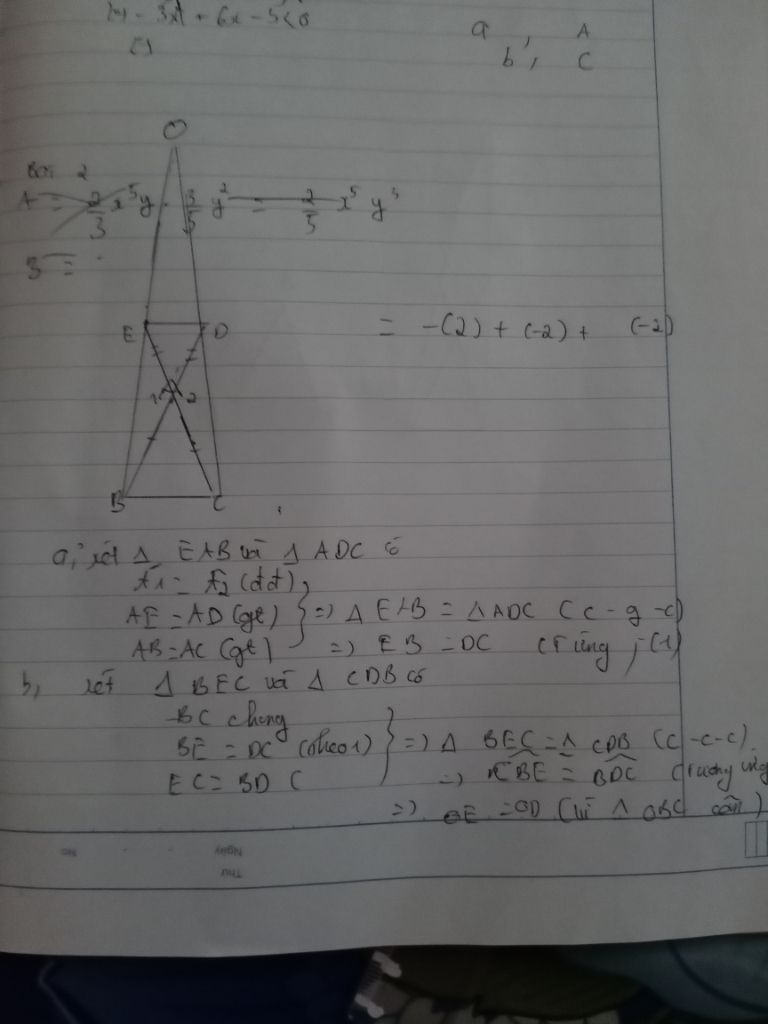 - 3x + 6x - 5 < 0
a, A
b, C
O
Bài 2
A = 2/3 x⁵y · 3/5 y² = 2/5 x⁵ y³
B =
E D
= -(2) + (-2) + (-2)
1 2
B C
a, xét Δ EAB và Δ ADC có
A1 = A2 (đđ)
AE = AD (gt) } => Δ EAB = Δ ADC (c - g - c)
AB = AC (gt) => EB = DC (1)
b, xét Δ BEC và Δ CDB có
BC chung
BE = DC (theo 1) => Δ BEC = Δ CDB (c - c - c)
EC = BD ( => = BDC (tương ứng
=> OE = OD (vì Δ OBC cân)
Ngày
Thứ